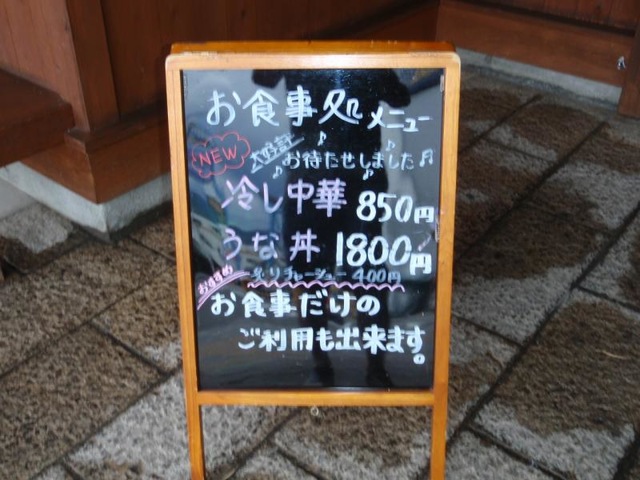 お食事処メニュー
NEW 大好評
お待たせしました
冷し中華 850円
うな丼 1800円
おすすめ チャーシュー 400円
お食事だけの
ご利用も出来ます。